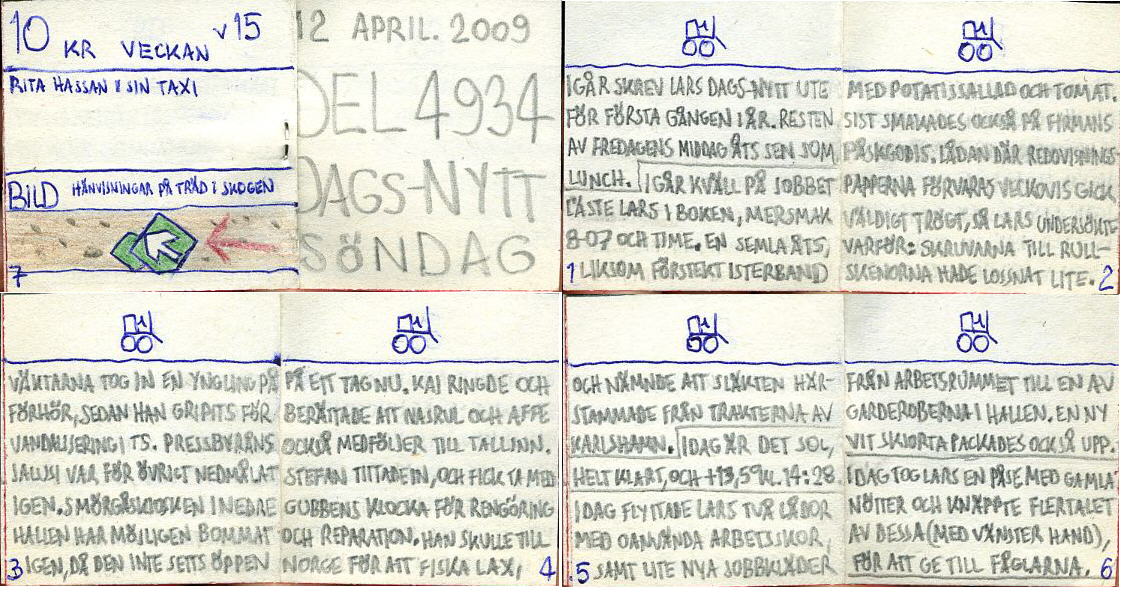 10 KR VECKAN V15
RITA HASSAN I SIN TAXI
BILD HÄNVISNINGAR PÅ TRÄD I SKOGEN
7
12 APRIL. 2009
DEL 4934
DAGS-NYTT
SÖNDAG
IGÅR SKREV LARS DAGS-NYTT UTE
FÖR FÖRSTA GÅNGEN I ÅR. RESTEN
AV FREDAGENS MIDDAG ÅTS SEN SOM
LUNCH. IGÅR KVÄLL PÅ JOBBET
LÄSTE LARS I BOKEN, MERSMAK
8-07 OCH TIME. EN SEMLA ÅTS,
1 LIKSOM FÖRSTEKT ISTERBAND
MED POTATISSALLAD OCH TOMAT.
SIST SMAKADES OCKSÅ PÅ FIRMANS
PÅSKGODIS. LÅDAN DÄR REDOVISNINGS-
PAPPERNA FÖRVARAS VECKOVIS GICK
VÄLDIGT TRÖGT, SÅ LARS UNDERSÖKTE
VARFÖR: SKRUVARNA TILL RULL-
SKENORNA HADE LOSSNAT LITE. 2
VÄKTARNA TOG IN EN YNGLING PÅ
FÖRHÖR, SEDAN HAN GRIPITS FÖR
VANDALISERING I TS. PRESSBYRÅNS
JALUSI VAR FÖR ÖVRIGT NEDMÅLAT
IGEN. SMÖRGÅSKIOSKEN I NEDRE
HALLEN HAR MÖJLIGEN BOMMAT
3 IGEN, DÅ DEN INTE SETTS ÖPPEN
PÅ ETT TAG NU. KAI RINGDE OCH
BERÄTTADE ATT NASRUL OCH AFFE
OCKSÅ MEDFÖLJER TILL TALLINN.
STEFAN TITTADE IN, OCH FICK TA MED
GUBBENS KLOCKA FÖR RENGÖRING
OCH REPARATION. HAN SKULLE TILL
NORGE FÖR ATT FISKA LAX, 4
OCH NÄMNDE ATT SLÄKTEN HÄR-
STAMMADE FRÅN TRAKTERNA AV
KARLSHAMN. IDAG ÄR DET SOL,
HELT KLART, OCH +13,5° KL. 14:28
IDAG FLYTTADE LARS TVÅ LÅDOR
MED OANVÄNDA ARBETSSKOR,
5 SAMT LITE NYA JOBBKLÄDER
FRÅN ARBETSRUMMET TILL EN AV
GARDEROBERNA I HALLEN. EN NY
VIT SKJORTA PACKADES OCKSÅ UPP.
IDAG TOG LARS EN PÅSE MED GAMLA
NÖTTER OCH KNÄPPTE FLERTALET
AV DESSA (MED VÄNSTER HAND),
FÖR ATT GE TILL FÅGLARNA. 6